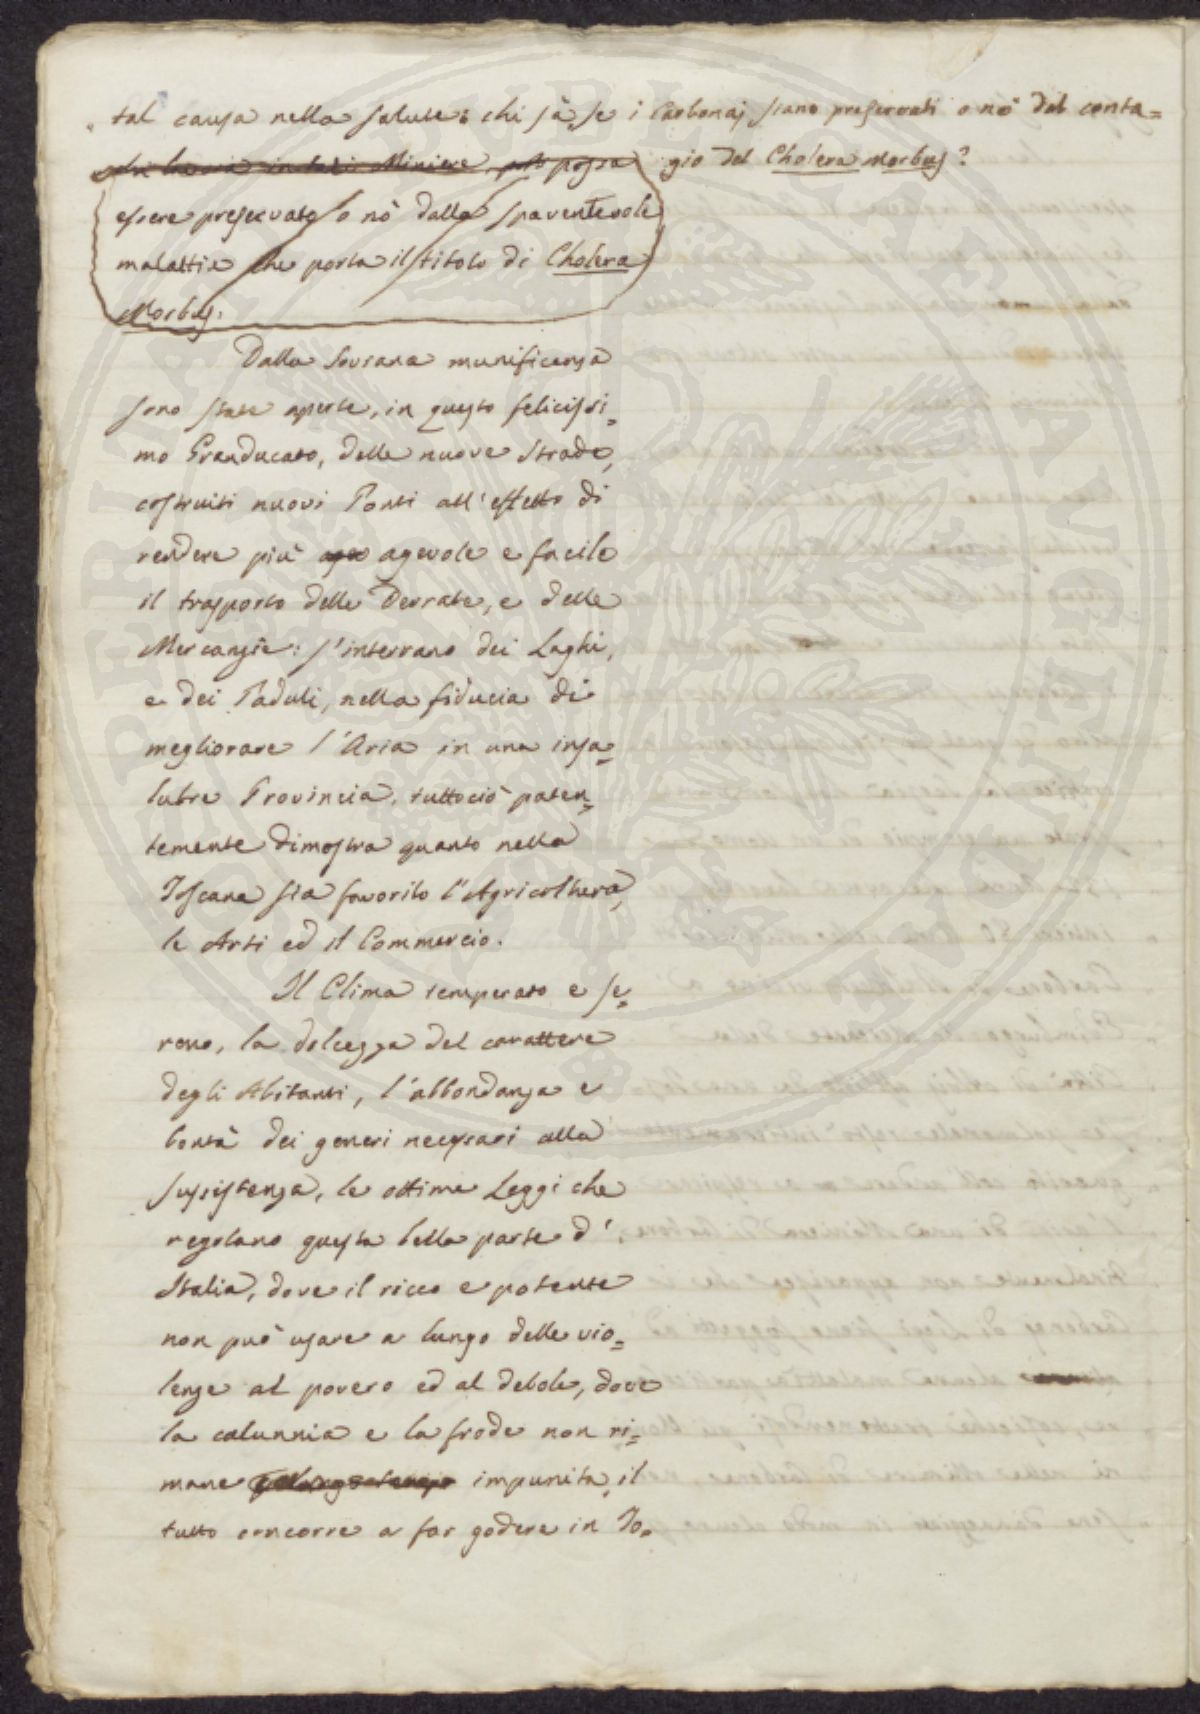 tal causa nella salute: chi sà se i Carbonaj siano preservati o nò dal conta=
gio del Cholera Morbus?
chi lavora in tali Miniere possa
essere preservato o nò dalla spaventevole
malattia che porta il titolo di Cholera
Morbus.
Dalla Sovrana munificenza
sono state aperte, in questo felicissi=
mo Granducato, delle nuove Strade,
costruiti nuovi Ponti all'effetto di
rendere più agevole e facile
il trasporto delle Derrate, e delle
Mercanzie: s'interrano dei Laghi,
e dei Paduli, nella fiducia di
megliorare l'Aria in una insa=
lubre Provincia, tuttociò paten=
temente dimostra quanto nella
Toscana sia favorito l'Agricoltura,
le Arti ed il Commercio.
Il Clima temperato e se=
reno, la dolcezza del carattere
degli Abitanti, l'abbondanza e
bontà dei generi necessari alla
sussistenza, le ottime Leggi che
regolano questa bella parte d'
Italia, dove il ricco e potente
non può usare a lungo delle vio=
lenze al povero ed al debole, dove
la calunnia e la frode non ri=
mane impunita, il
tutto concorre a far godere in To=